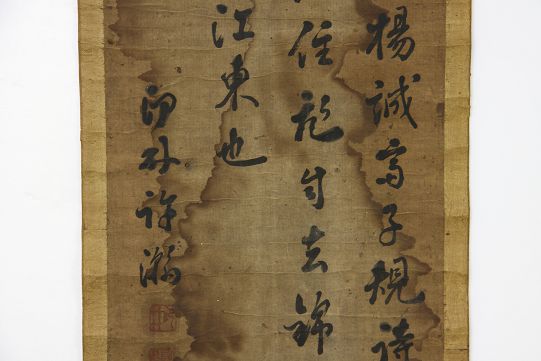 楊誠齋子規詩
住自去錦
江東也
印林許瀚